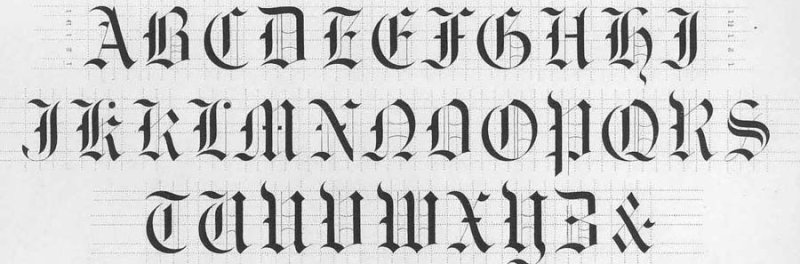 A B C D E E F G H H I
J K K L M N N O O P Q R S
T U U V W X Y Z &